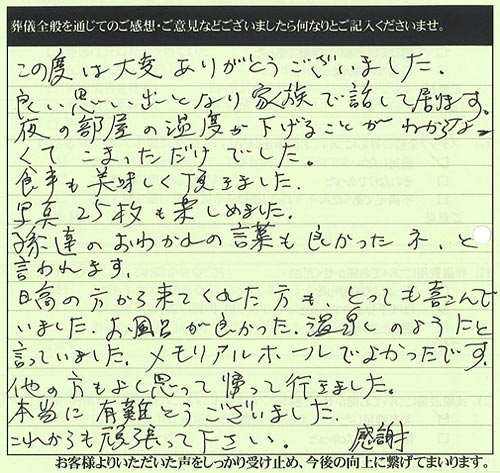 葬儀全般を通じてのご感想・ご意見などございましたら何なりとご記入くださいませ。
この度は大変ありがとうございました.
良い思い出となり家族で話して居ます。
夜の部屋の温度が下げることがわからな
くてこまっただけでした。
食事も美味しく頂きました.
写真25枚も楽しめました.
孫達のおわかれの言葉も良かったネ、と
言われます.
日高の方から来てくれた方も、とっても喜こんで
いました.お風呂が良かった.温泉のようだと
言っていました.メモリアルホールでよかったです.
他の方もよし思って帰って行きました.
本当に有難とうございました.
これからも頑張って下さい。 感謝
お客様よりいただいた声をしっかり受け止め、今後の向上に繋げてまいります。